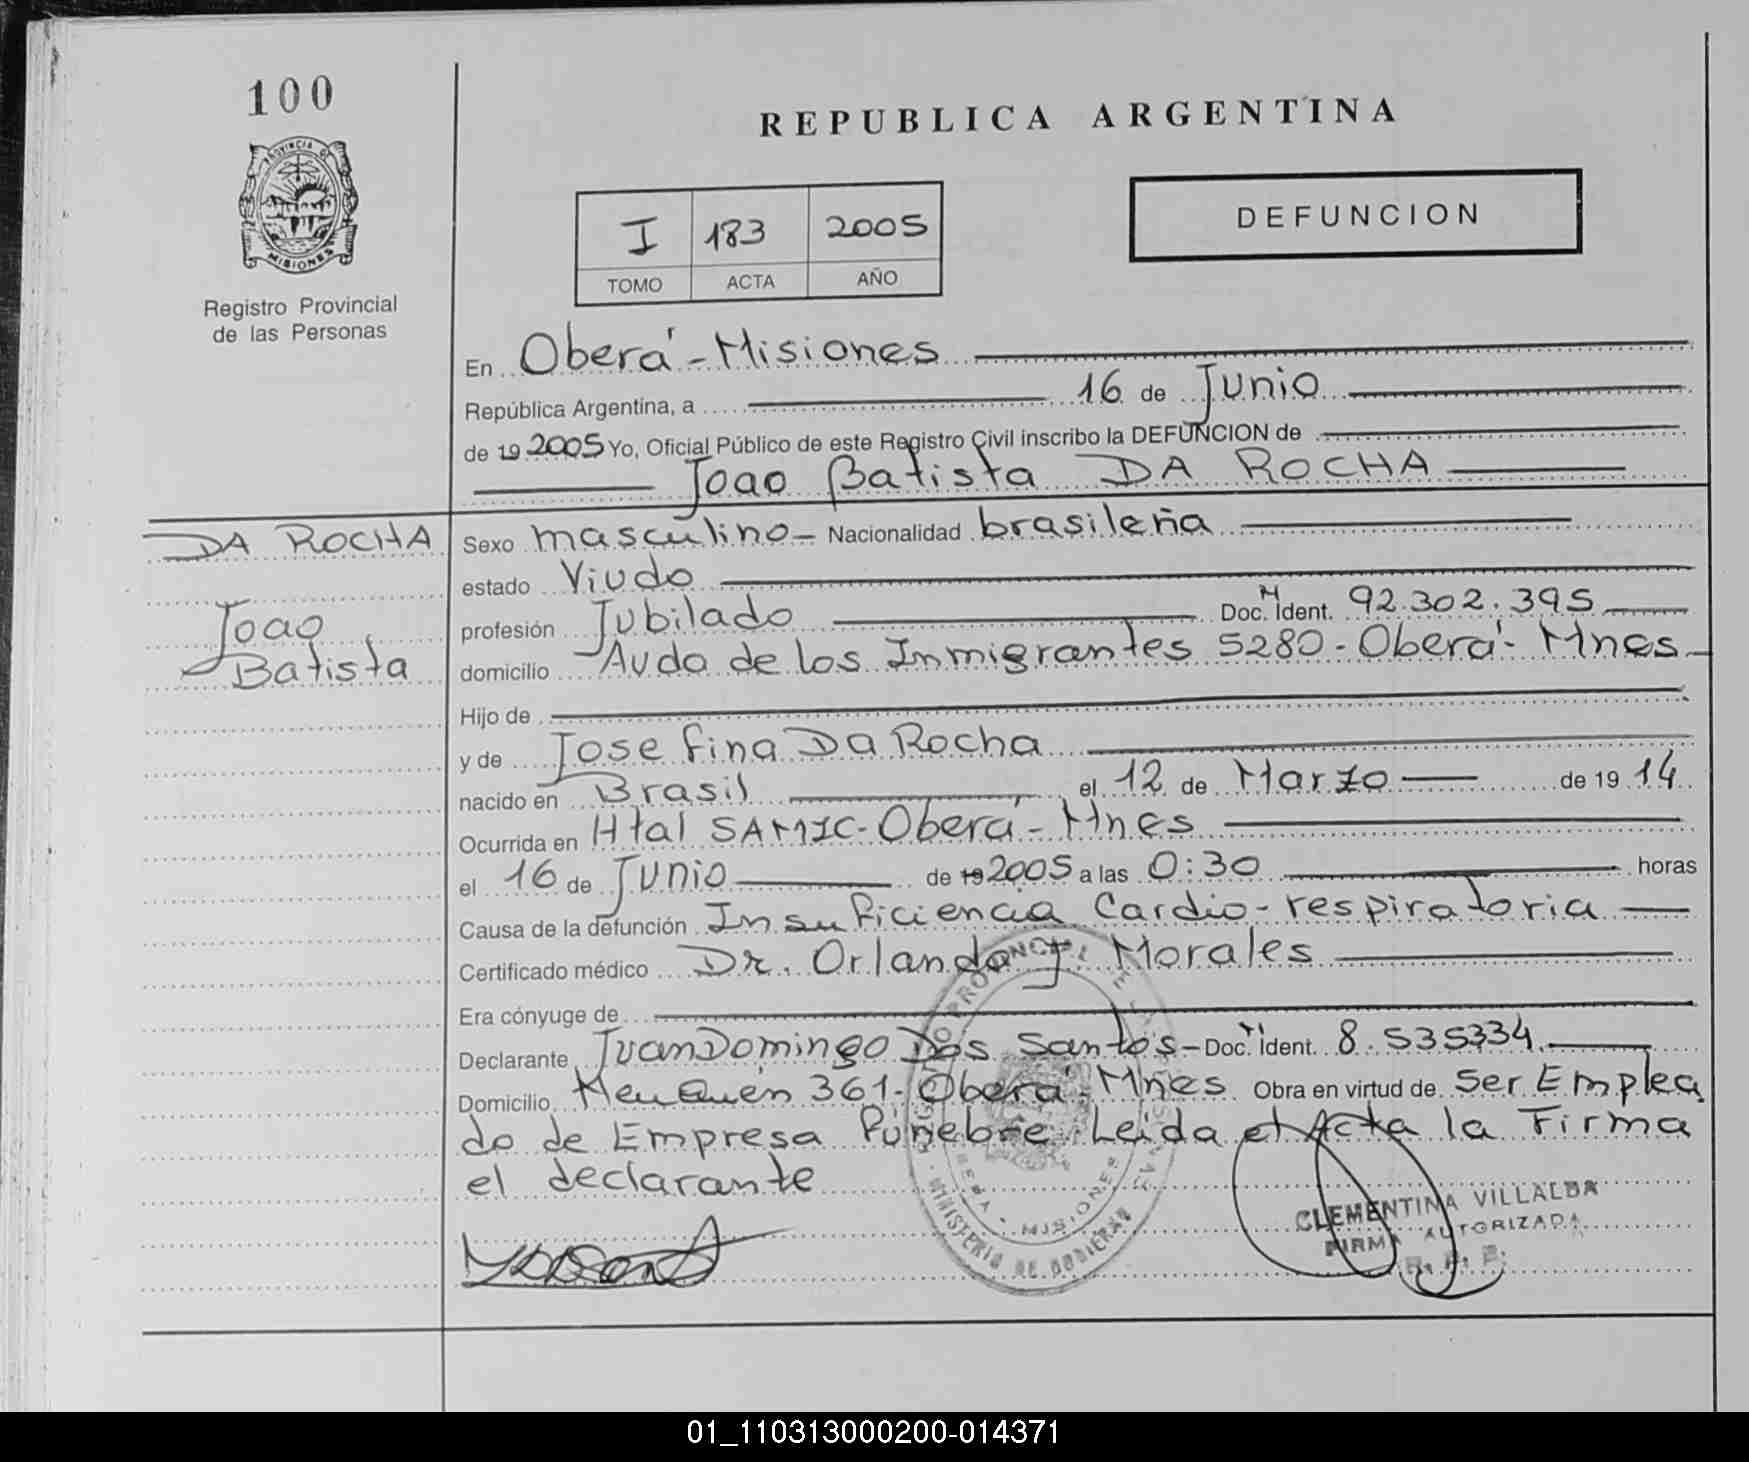 100
REPUBLICA ARGENTINA
PROVINCIA DE
MISIONES
Registro Provincial
de las Personas
I 183 2005
TOMO ACTA AÑO
DEFUNCION
En Oberá - Misiones
República Argentina, a 16 de Junio
de 19 2005 Yo, Oficial Público de este Registro Civil inscribo la DEFUNCION de
Joao Batista DA ROCHA
DA ROCHA
Joao
Batista
Sexo masculino - Nacionalidad brasileña
estado Viudo
profesión Jubilado Doc. M Ident. 92.302.395
domicilio Avda de los Inmigrantes 5280 - Oberá - Mnes
Hijo de
y de Josefina Da Rocha
nacido en Brasil el 12 de Marzo de 19 14
Ocurrida en Htal SAMIC - Oberá - Mnes
el 16 de Junio de 19 2005 a las 0:30 horas
Causa de la defunción Insuficiencia Cardio-respiratoria
Certificado médico Dr. Orlando J. Morales
Era cónyuge de
Declarante Juan Domingo Dos Santos - Doc. M Ident. 8.535334
Domicilio Neuquén 361 - Oberá - Mnes Obra en virtud de Ser Emplea
do de Empresa Fúnebre Leida el Acta la Firma
el declarante
MINISTERIO DE GOBIERNO
MISIONES
CLEMENTINA VILLALBA
FIRMA AUTORIZADA
R. P. P.
01_110313000200-014371